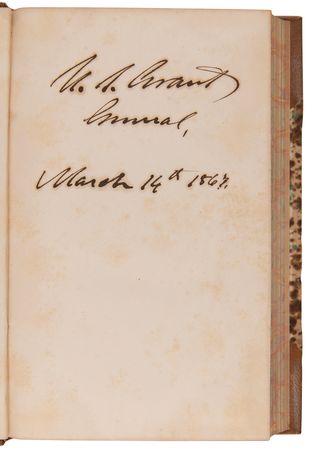 U. S. Grant
General,
March 14th 1867.